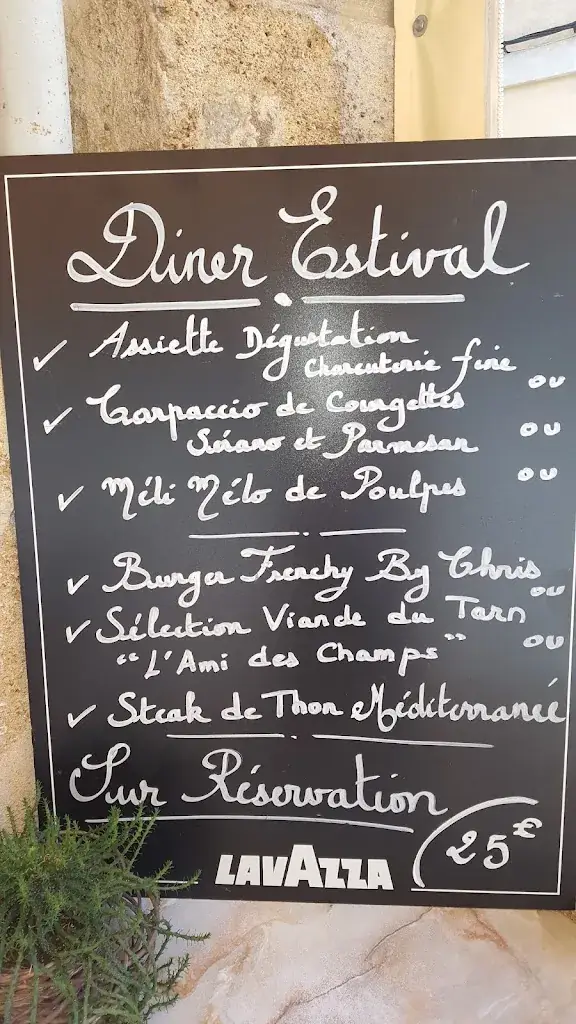 Dîner Estival
Assiette Dégustation
Charcuterie fine
ou
Carpaccio de Courgettes
Sérano et Parmesan
ou
Méli Mélo de Poulpes
ou
Burger Frenchy By Chris
ou
Sélection Viande du Tarn
"L'Ami des Champs"
ou
Steak de Thon Méditerranée
Sur Réservation
25€
LAVAZZA